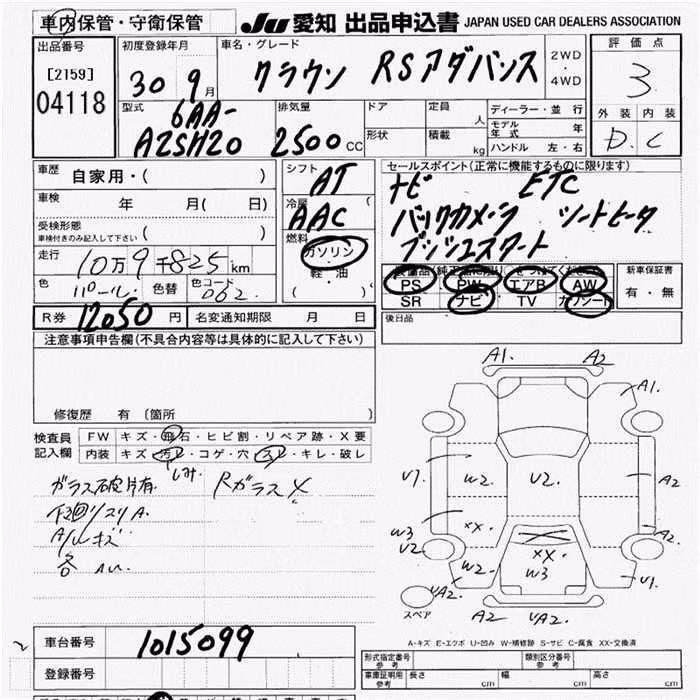 車内保管・守衛保管 JU 愛知 出品申込書 JAPAN USED CAR DEALERS ASSOCIATION
出品番号 [2159] 04118
初度登録年月 30年 9月
車名・グレード クラウン RSアダバンス
2WD・4WD
評価点 3
外装 内装 D. C
型式 6AA-AZSH20
排気量 2500cc
ドア 形状
定員 人
積載 kg
ディーラー・並行
モデル年式 年
ハンドル 左・右
車歴 自家用・( )
車検 年 月( 日)
受検形態 車検付きのみ記入して下さい ( )
走行 10万9千825km
色 パール 色替 色コード 062
シフト AT
冷房 AAC
燃料 ガソリン 軽・油 ( )
セールスポイント(正常に機能するものに限ります)
ナビ ETC
バックカメラ シートヒータ
プッシュスタート
PS PW エアB AW
SR ナビ TV カワシート
新車保証書 有・無
R券 12050円 名変通知期限 月 日
後日品
注意事項申告欄(不具合内容等は具体的に記入して下さい)
修復歴 有 〔箇所 〕
検査員記入欄 FW キズ・飛石・ヒビ割・リペア跡・X要
内装 キズ・汚レ・コゲ・穴・スレ・キレ・破レ
しみ
ガラス破片有 RガラスX
下廻リスリA.
A/Wキズ
各
A1. A2
A1.
U1 W2 U2. A2
W3 U2 XX.
XX. W3
W2 A2.
UA2. U1.
スペア A2 UA2.
A-キズ E-エクボ U-凹み W-補修跡 S-サビ C-腐食 XX-交換済
車台番号 1015099
登録番号
型式指定番号 参考 類別区分番号 参考
車庫証明用 参考 長さ cm 幅 cm 高さ cm